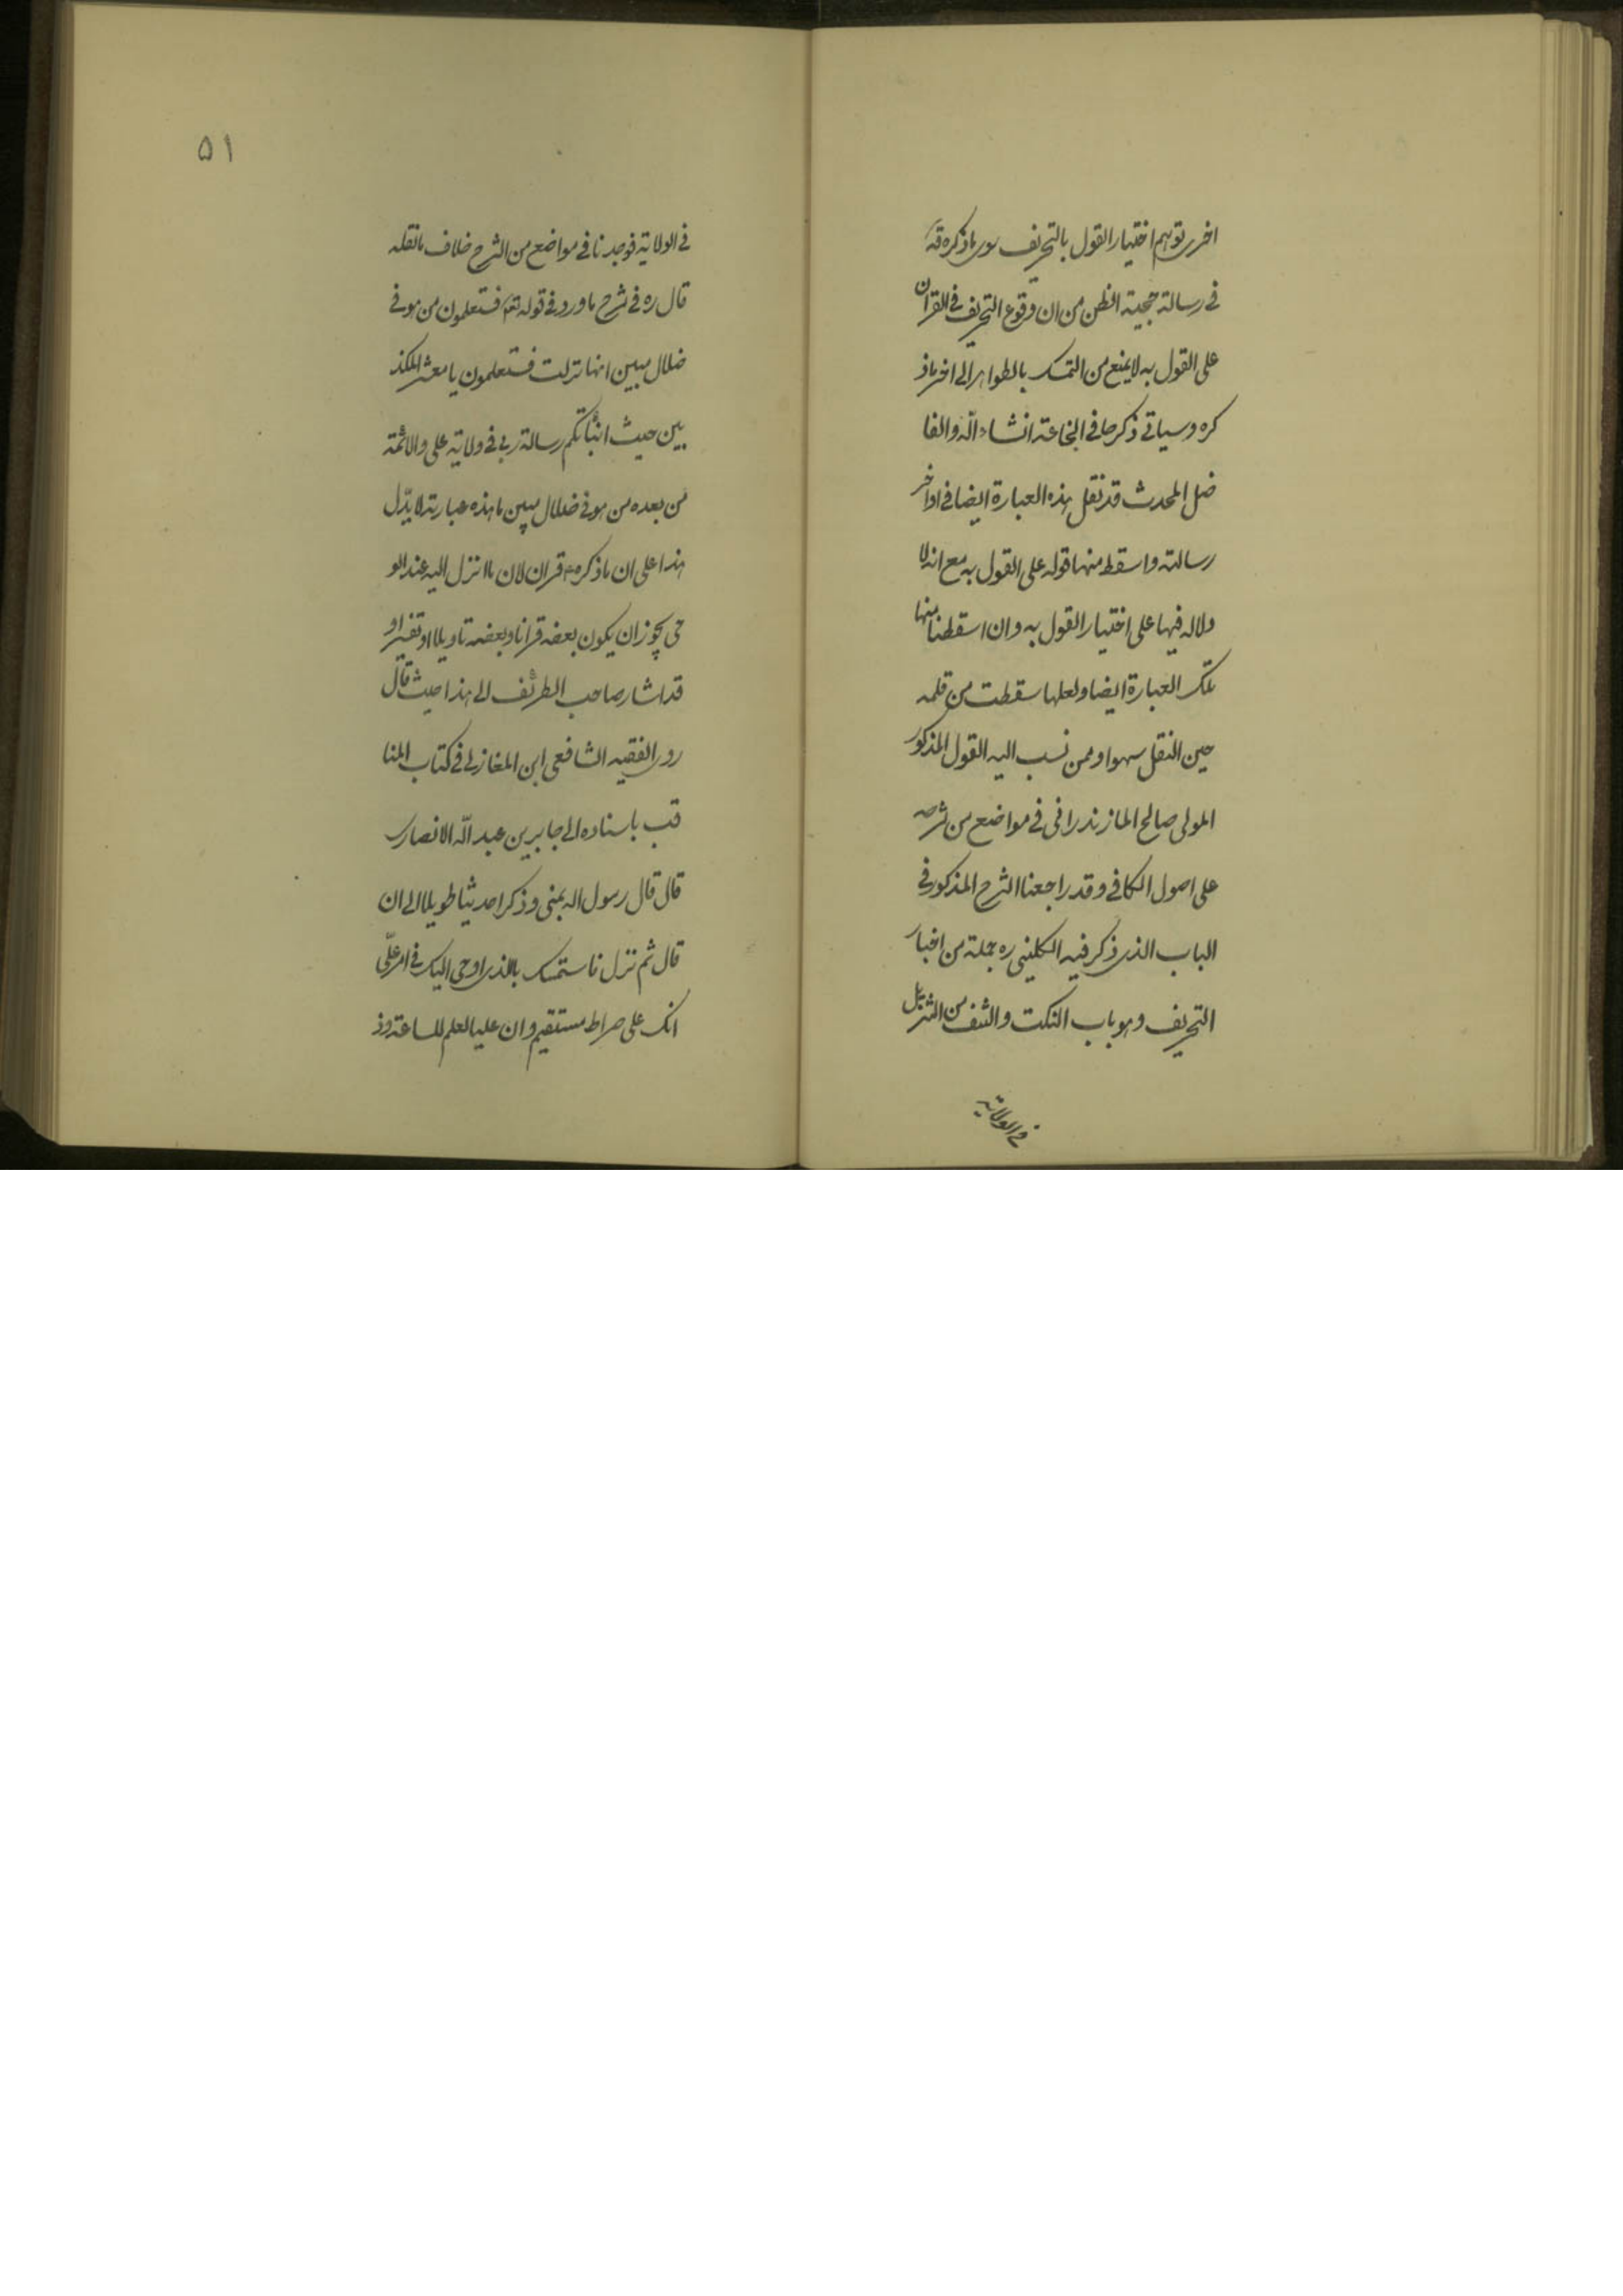 اخرى توهم اختيار القول بالتحريف سوى ما ذكره قده
في رسالة حجية الظن من ان وقوع التحريف في القرآن
على القول به لا يمنع من التمسك بالظواهر الى اخر ما ذ
كره وسياتي ذكرها في الخاتمة انشاء الله والفا
ضل المحدث قد نقل هذه العبارة ايضا في اواخر
رسالته واسقط منها قوله على القول به مع انه لا
دلاله فيها على اختيار القول به وان اسقطنا منها
تلك العبارة ايضا ولعلها سقطت من قلمه
حين النقل سهوا وممن نسب اليه القول المذكور
المولى صالح المازندرانى في مواضع من شرحه
على اصول الكافي وقد راجعنا الشرح المذكور في
الباب الذى ذكر فيه الكلينى ره جملة من اخبار
التحريف وهو باب النكت والنتف من التنزيل
في الولاية
٥١
في الولاية فوجدنا في مواضع من الشرح خلاف ما نقله
قال ره في شرح ما ورد في قوله تعم فستعلمون من هو في
ضلال مبين انها نزلت فستعلمون يا معشر المكذ
بين حيث انبأتكم رسالة ربي في ولاية على والائمة
من بعده من هو في ضلال مبين ما هذه عبارته لا يدّل
هذا على ان ما ذكره قران لان ما انزل اليه عند الو
حى يجوز ان يكون بعضه قرانا وبعضه تاويلا او تفسيرا و
قد اشار صاحب الطرئف الى هذا حيث قال
روى الفقيه الشافعى ابن المغازلي في كتاب المنا
قب باسناده الى جابر بن عبد الله الانصارى
قال قال رسول الله بمنى وذكر احديثا طويلا الى ان
قال ثم نزل فاستمسك بالذى اوحى اليك في امر علّى
انك على صراط مستقيم وان عليا لعلم للساعة وذ